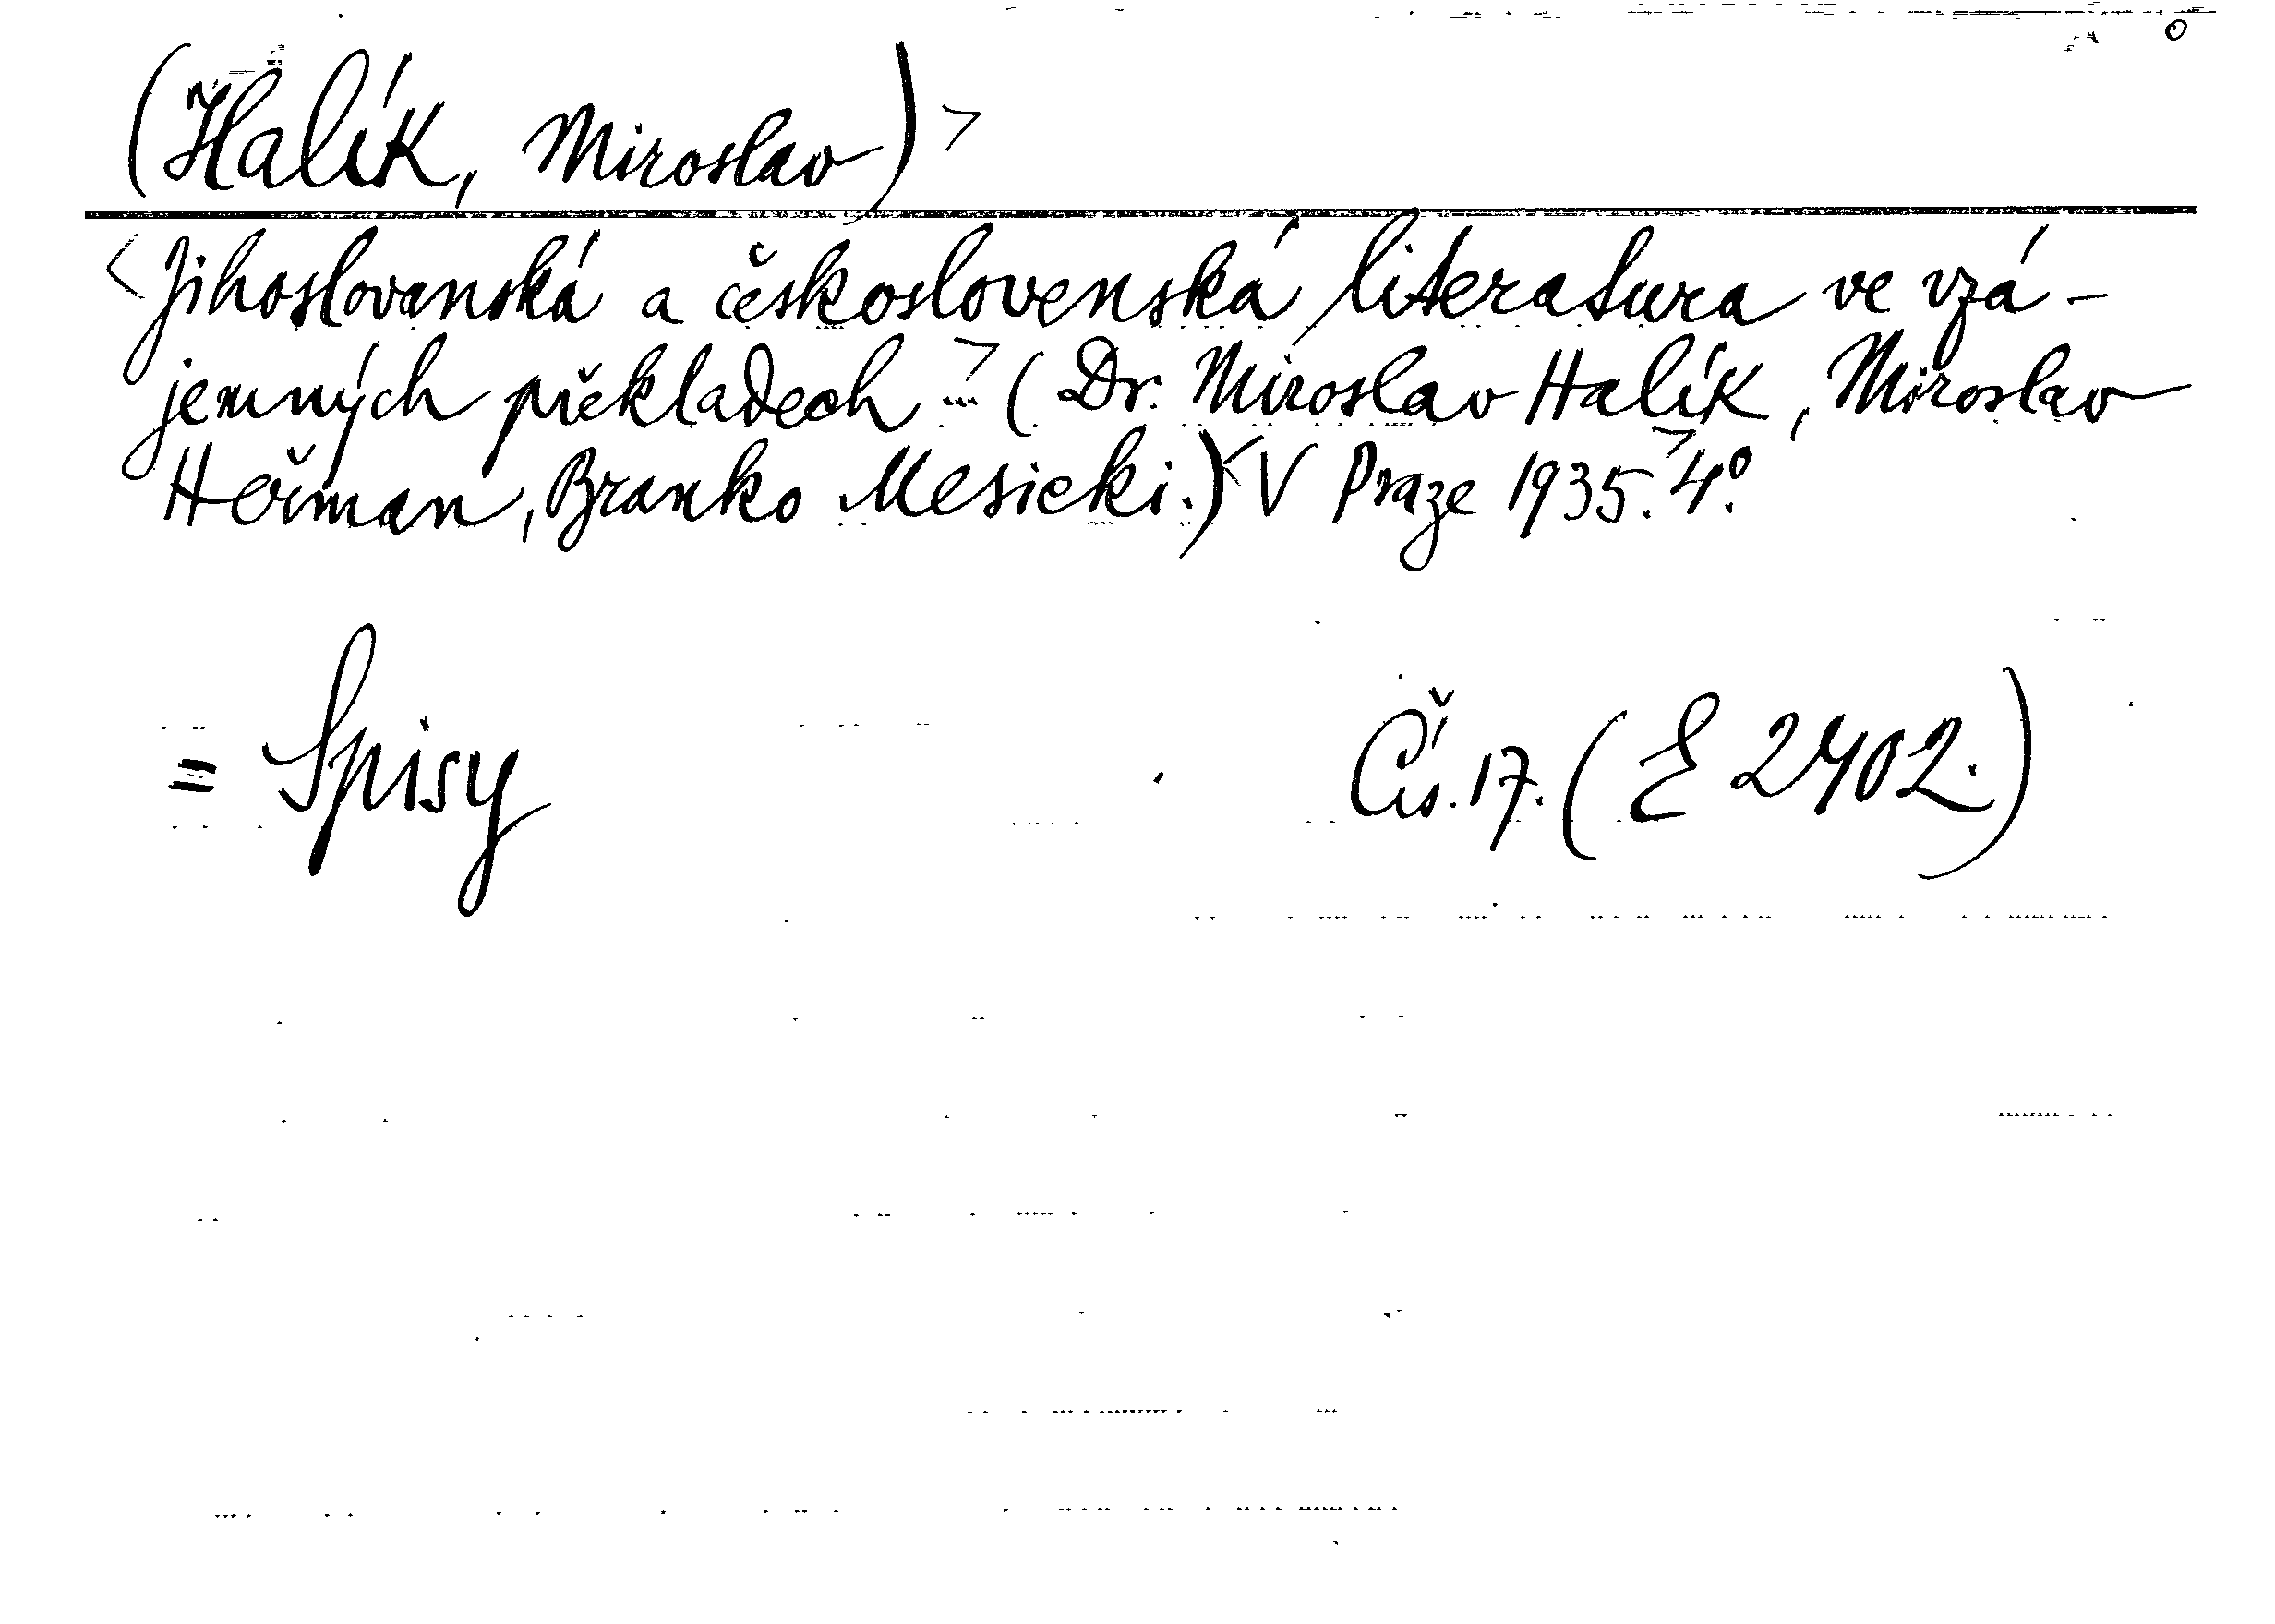 (Halík, Miroslav)>
<Jihoslovanská a československá literatura ve vzá-
jemných překladech...> (Dr. Miroslav Halík, Miroslav
Heřman, Branko Mesicki.)<V Praze 1935.> 4°.
= Spisy Čís. 17. (E 2402.)